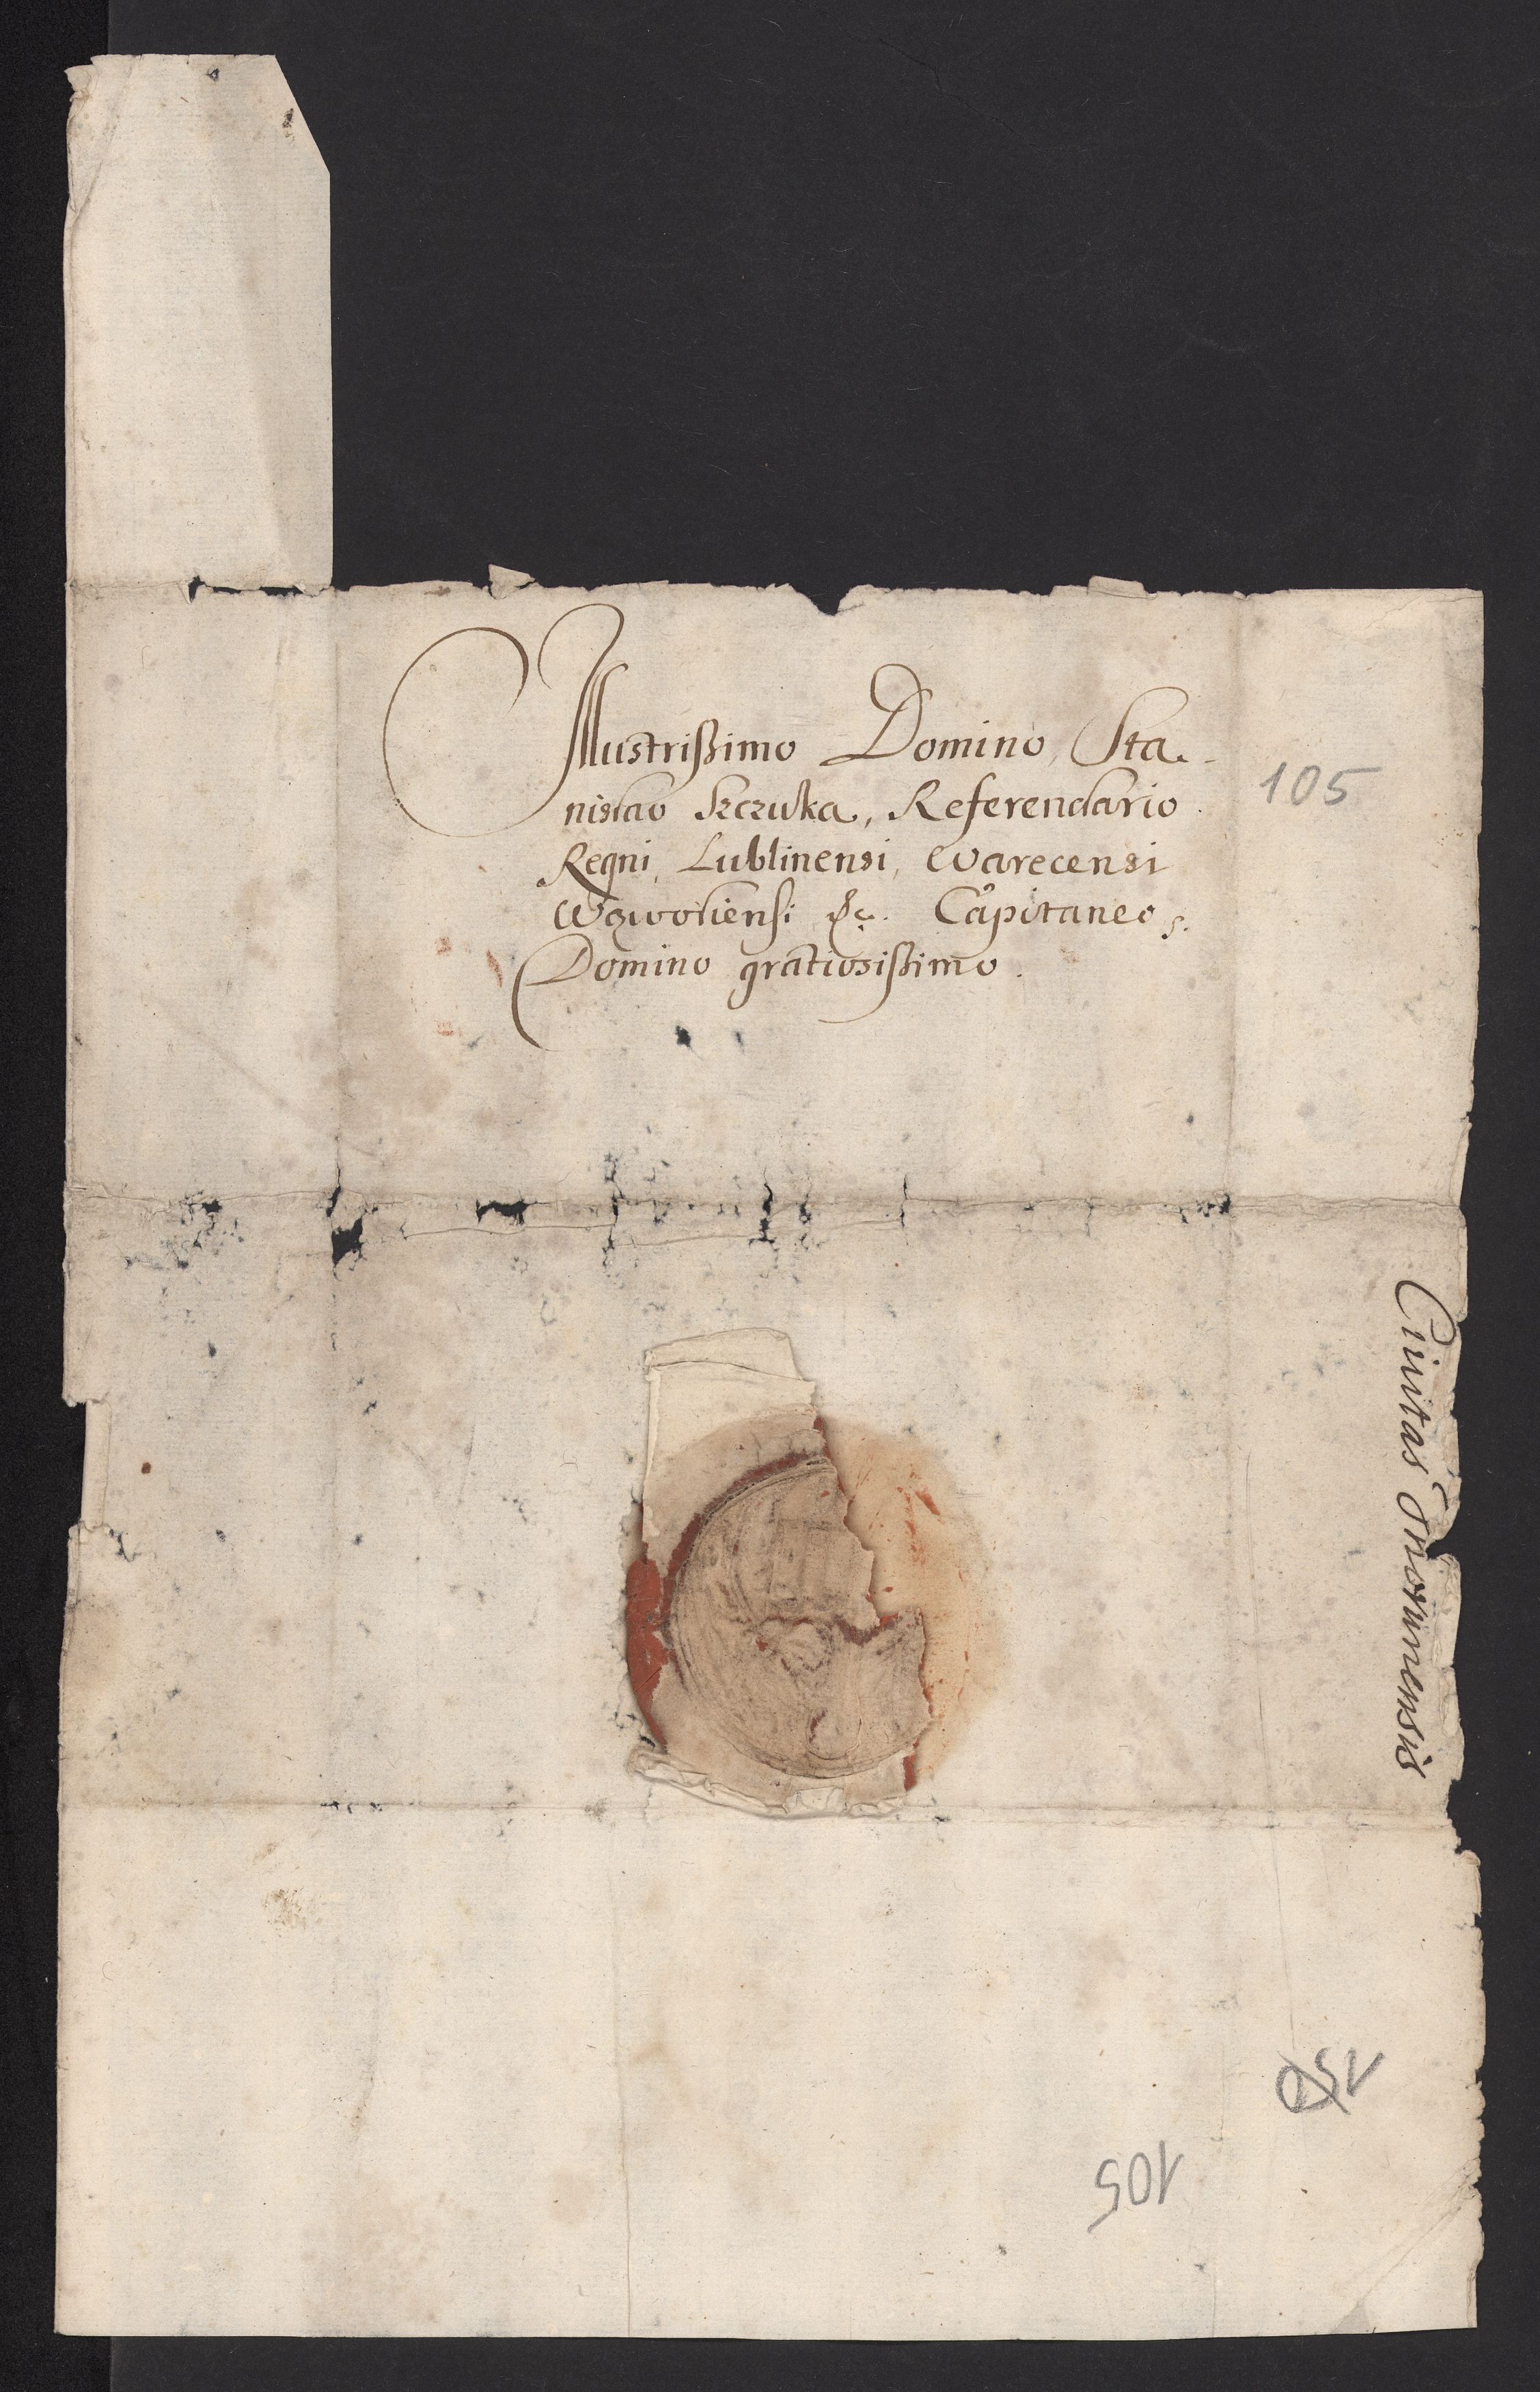 Illustrißimo Domino, Sta-
nislao Szczuka, Referendario
Regni, Lublinensi, Warecensi
Wąwolnensi &c. Capitaneo,
Domino gratiosißimo.
105
Civitas Thorunensis
150
105